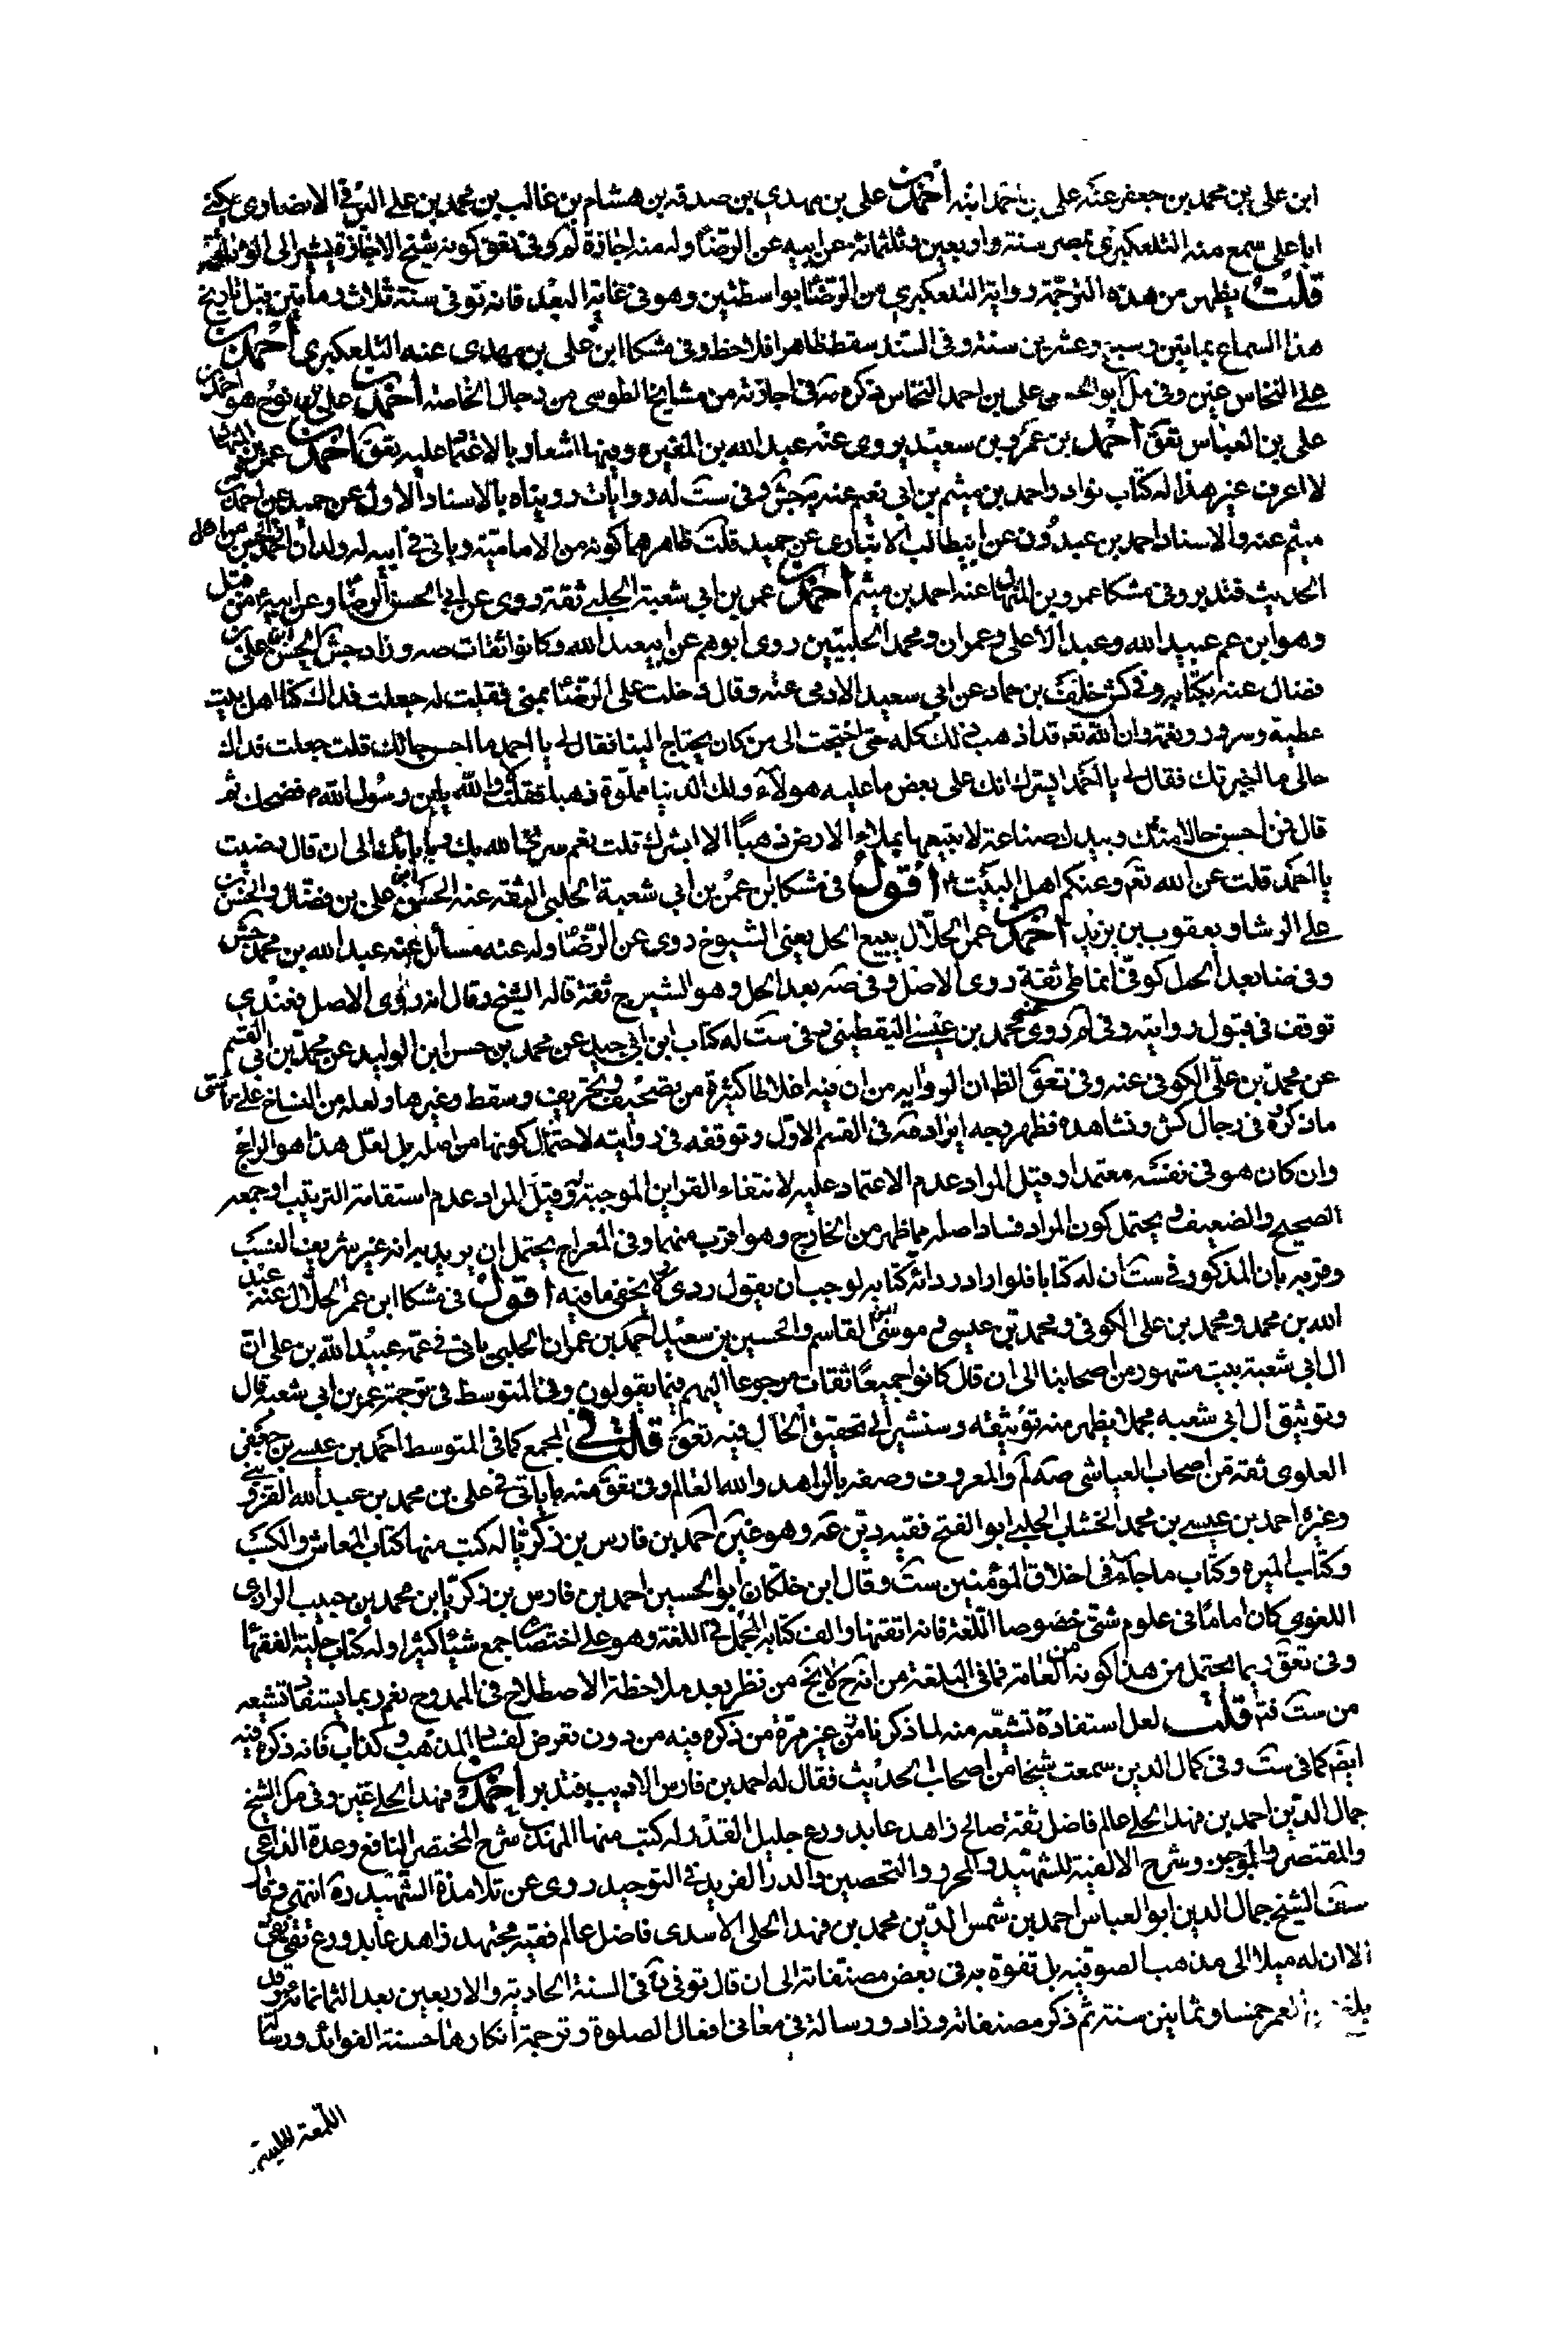 ابن على بن محمد بن جعفر عنه على بن احمد ابنه أحمد بن على بن مهدي بن صدقه بن هشام بن غالب بن محمد بن على الرقى الانصارى يكنى
ابا على سمع منه التلعكبرى بمصر سنة واربعين وثلثمائة عن ابيه عن الرضا وله منه اجازة لم وفى تعق كونه شيخ الاجازة يشير الى الوثاقة
قلت يظهر من هذه الترجمة رواية التلعكبري من الرضا بواسطتين وهو فى غاية البعد فانه توفى سنة ثلاث ومأتين قبل تاريخ
هذا السماع بمايتين وسبع وعشرين سنة وفى السند سقط ظاهرا فلاحظ وفى مشكا ابن على بن مهدى عنه التلعكبرى أحمد بن
على النخاس عين وفى مل ابو الحسن على بن احمد النخاس ذكره مه فى اجازته من مشايخ الطوسى من رجال الخاصه أحمد بن على بن نوح هو احمد بن
على بن العباس تعق أحمد بن عمرو بن سعيد يروى عنه عبد الله بن المغيره وفيها اشعار بالاعتماد عليه تعق أحمد بن عمر بن المنهال
لا اعرف غير هذا له كتاب نوادر احمد بن ميثم بن ابى نعيم عنه به جش وفى ست له روايات رويناه بالاسناد الاول عن حميد عن احمد بن
ميثم عنه والاسناد احمد بن عبدون عن ابيطالب الانبارى عن حميد قلت ظاهرهما كونه من الامامية وياتى فى ابيه له ولدان احمد والحسن من اهل
الحديث فتدبر وفى مشكا عمرو بن المنهال عنه احمد بن ميثم أحمد بن عمر بن ابي شعبة الحلبى ثقة روى عن ابى الحسن الرضا وعن ابيه ع من قبل
وهو ابن عم عبيد الله وعبد الأعلى وعمران ومحمد الحلبيين روى ابوهم عن ابيعبد الله وكانوا ثقات صه وزاد جش الحسن بن على بن
فضال عنه بكتابه وفى كش خلف بن حماد عن ابي سعيد الادمى عنه وقال دخلت على الرضا بمنى فقلت له جعلت فداك كنا اهل بيت
عطية وسرور ونعمة وان الله تعم قد اذهب ذلك كله حتى احتجت الى من كان يحتاج الينا فقال لى يا احمد ما احسن حالك قلت جعلت فداك
حالى ما اخبرتك فقال لى يا احمد ايسرك انك على بعض ما عليه هولآء ولك الدنيا مملوة ذهبا فقلت لا والله يابن رسول الله م فضحك ثم
قال فمن احسن حالا منك وبيدك صناعة لا تبيعها بملاء الارض ذهبا الا ابشرك قلت نعم سرنى الله بك وبابائك الى ان قال رضيت
يا احمد قلت عن الله تعم وعنكم اهل البيت أقول فى مشكا ابن عمر بن ابي شعبة الحلبى الثقه عنه الحسن بن على بن فضال والحسن بن
على الوشا ويعقوب بن يزيد أحمد بن عمر الحلال يبيع الحل يعنى الشيرج روى عن الرضا وله عنه مسائل عنه عبد الله بن محمد جش
وفى ضا بعد الحل كوفى انماطى ثقة روى الاصل وفى صه بعد الحل وهو الشيرج ثقة قاله الشيخ وقال انه ردى الاصل فعندي
توقف فى قبول روايته وفى لم روى عنه محمد بن عيسى اليقطينى وفى ست له كتاب ابن ابى جيد عن محمد بن حسن ابن الوليد عن محمد بن ابى القسم
عن محمد بن على الكوفى عنه وفى تعق الظ ان الوداية من ان فيه اغلاطا كثيرة من تصحيف وتحريف وسقط وغيرها ولعله من النساخ على ما
ما ذكره فى رجال كش ونشاهده فظهر وجه ايراد مه فى القسم الاول وتوقفه فى روايته لاحتمال كونها من اصله بل لعل هذا هو الراجح
وان كان هو فى نفسه معتمدا وقيل المراد عدم الاعتماد عليه لانتفاء القراين الموجبة له وقيل المراد عدم استقامة الترتيب او جمعه
الصحيح والضعيف ويحتمل كون المراد فساد اصله مما ظهر من الخارج وهو اقرب منهما وفى المعراج يحتمل ان يريد به انه غير شريف النسب
وقربه بان المذكور فى ست ان له كتابا فلو اراد ردائة كتابه لوجب ان يقول ردى ولا يخفى ما فيه أقول فى مشكا ابن عمر الحلال عنه عبد
الله بن محمد ومحمد بن على الكوفى ومحمد بن عيسى وموسى بن القاسم والحسين بن سعيد احمد بن عمران الحلبى ياتى فى عمه عبيد الله بن على ان
ال ابى شعبة بيت مشهور من اصحابنا الى ان قال كانوا جميعا ثقات مرجوعا اليهم فيما يقولون وفى المتوسط فى ترجمة عمر بن ابى شعبه قال
وتوثيق ال ابى شعبه مجملا يظهر منه توثيقه وسنشير الى تحقيق الحال فيه تعق قلت فى المجمع كما فى المتوسط احمد بن عيسى بن جعفر
العلوى ثقة من اصحاب العياشى صه لم والمعروف وصفه بالزاهد والله العالم وفى تعق منه ما ياتى فى على بن محمد بن عبد الله القزوينى
وغيره احمد بن عيسى بن محمد الخشاب الحلبى ابو الفتح فقيه دين عه وهو عين احمد بن فارس بن ذكريا له كتب منها كتاب المعاش والكسب
وكتاب الميره وكتاب ما جاء فى اخلاق المؤمنين ست وقال ابن خلكان ابو الحسين احمد بن فارس بن ذكريا ابن محمد بن حبيب الرازى
اللغوى كان اماما فى علوم شتى خصوصا اللغة فانه اتقنها والف كتابه المجمل فى اللغة وهو على اختصاره جمع شيئا كثيرا وله كتاب حلية الفقهاء
وفى تعق ربما يحتمل من هذا كونه من العامة فما فى البلغة من انه ح لا يخ من نظر بعد ملاحظة الاصطلاح فى الممدوح نعم ربما يستفاد تشيعه
من ست فتم قلت لعل استفادة تشيعه منه لما ذكرنا من غير مرة من ذكره فيه من دون تعرض لفساد المذهب وكذا ب فانه ذكره فيه
ايضم كما فى ست وفى كمال الدين سمعت شيخا من اصحاب الحديث فقال له احمد بن فارس الاديب فتدبر أحمد بن فهد الحلى عين وفى مل الشيخ
جمال الدين احمد بن فهد الحلى عالم فاضل ثقة صالح زاهد عابد ورع جليل القدر له كتب منها المهذب شرح المختصر النافع وعدة الداعى
والمقتصر والموجز وشرح الالفية للشهيد والمحرر والتحصين والدر الفريد فى التوحيد روى عن تلامذة الشهيد ره انتهى وقال
الشيخ جمال الدين ابو العباس احمد بن شمس الدين محمد بن فهد الحلى الاسدى فاضل عالم فقيه مجتهد زاهد عابد ورع تقى نقى
الا ان له ميلا الى مذهب الصوفيه بل تفوه به فى بعض مصنفاته الى ان قال توفى فى السنة الحادية والاربعين بعد الثمانمائة وقد
بلغ العمر خمسا وثمانين سنة ثم ذكر مصنفاته وزاد ورسالة فى معانى افعال الصلوة وترجمة اذكارها حسنة الفوائد ورسالة
اللمعة الجلية